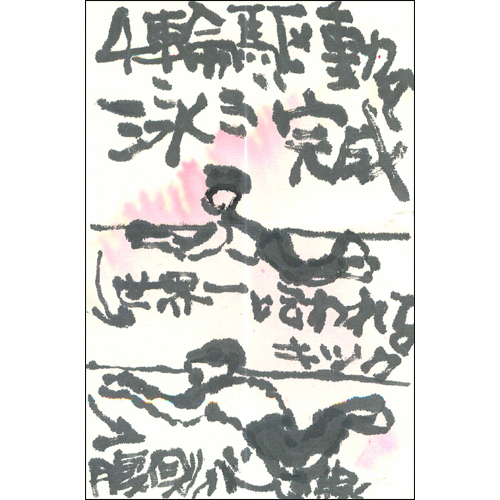 4輪駆動の
泳ぎ完成
世界一
と言われる
キック
腹側が